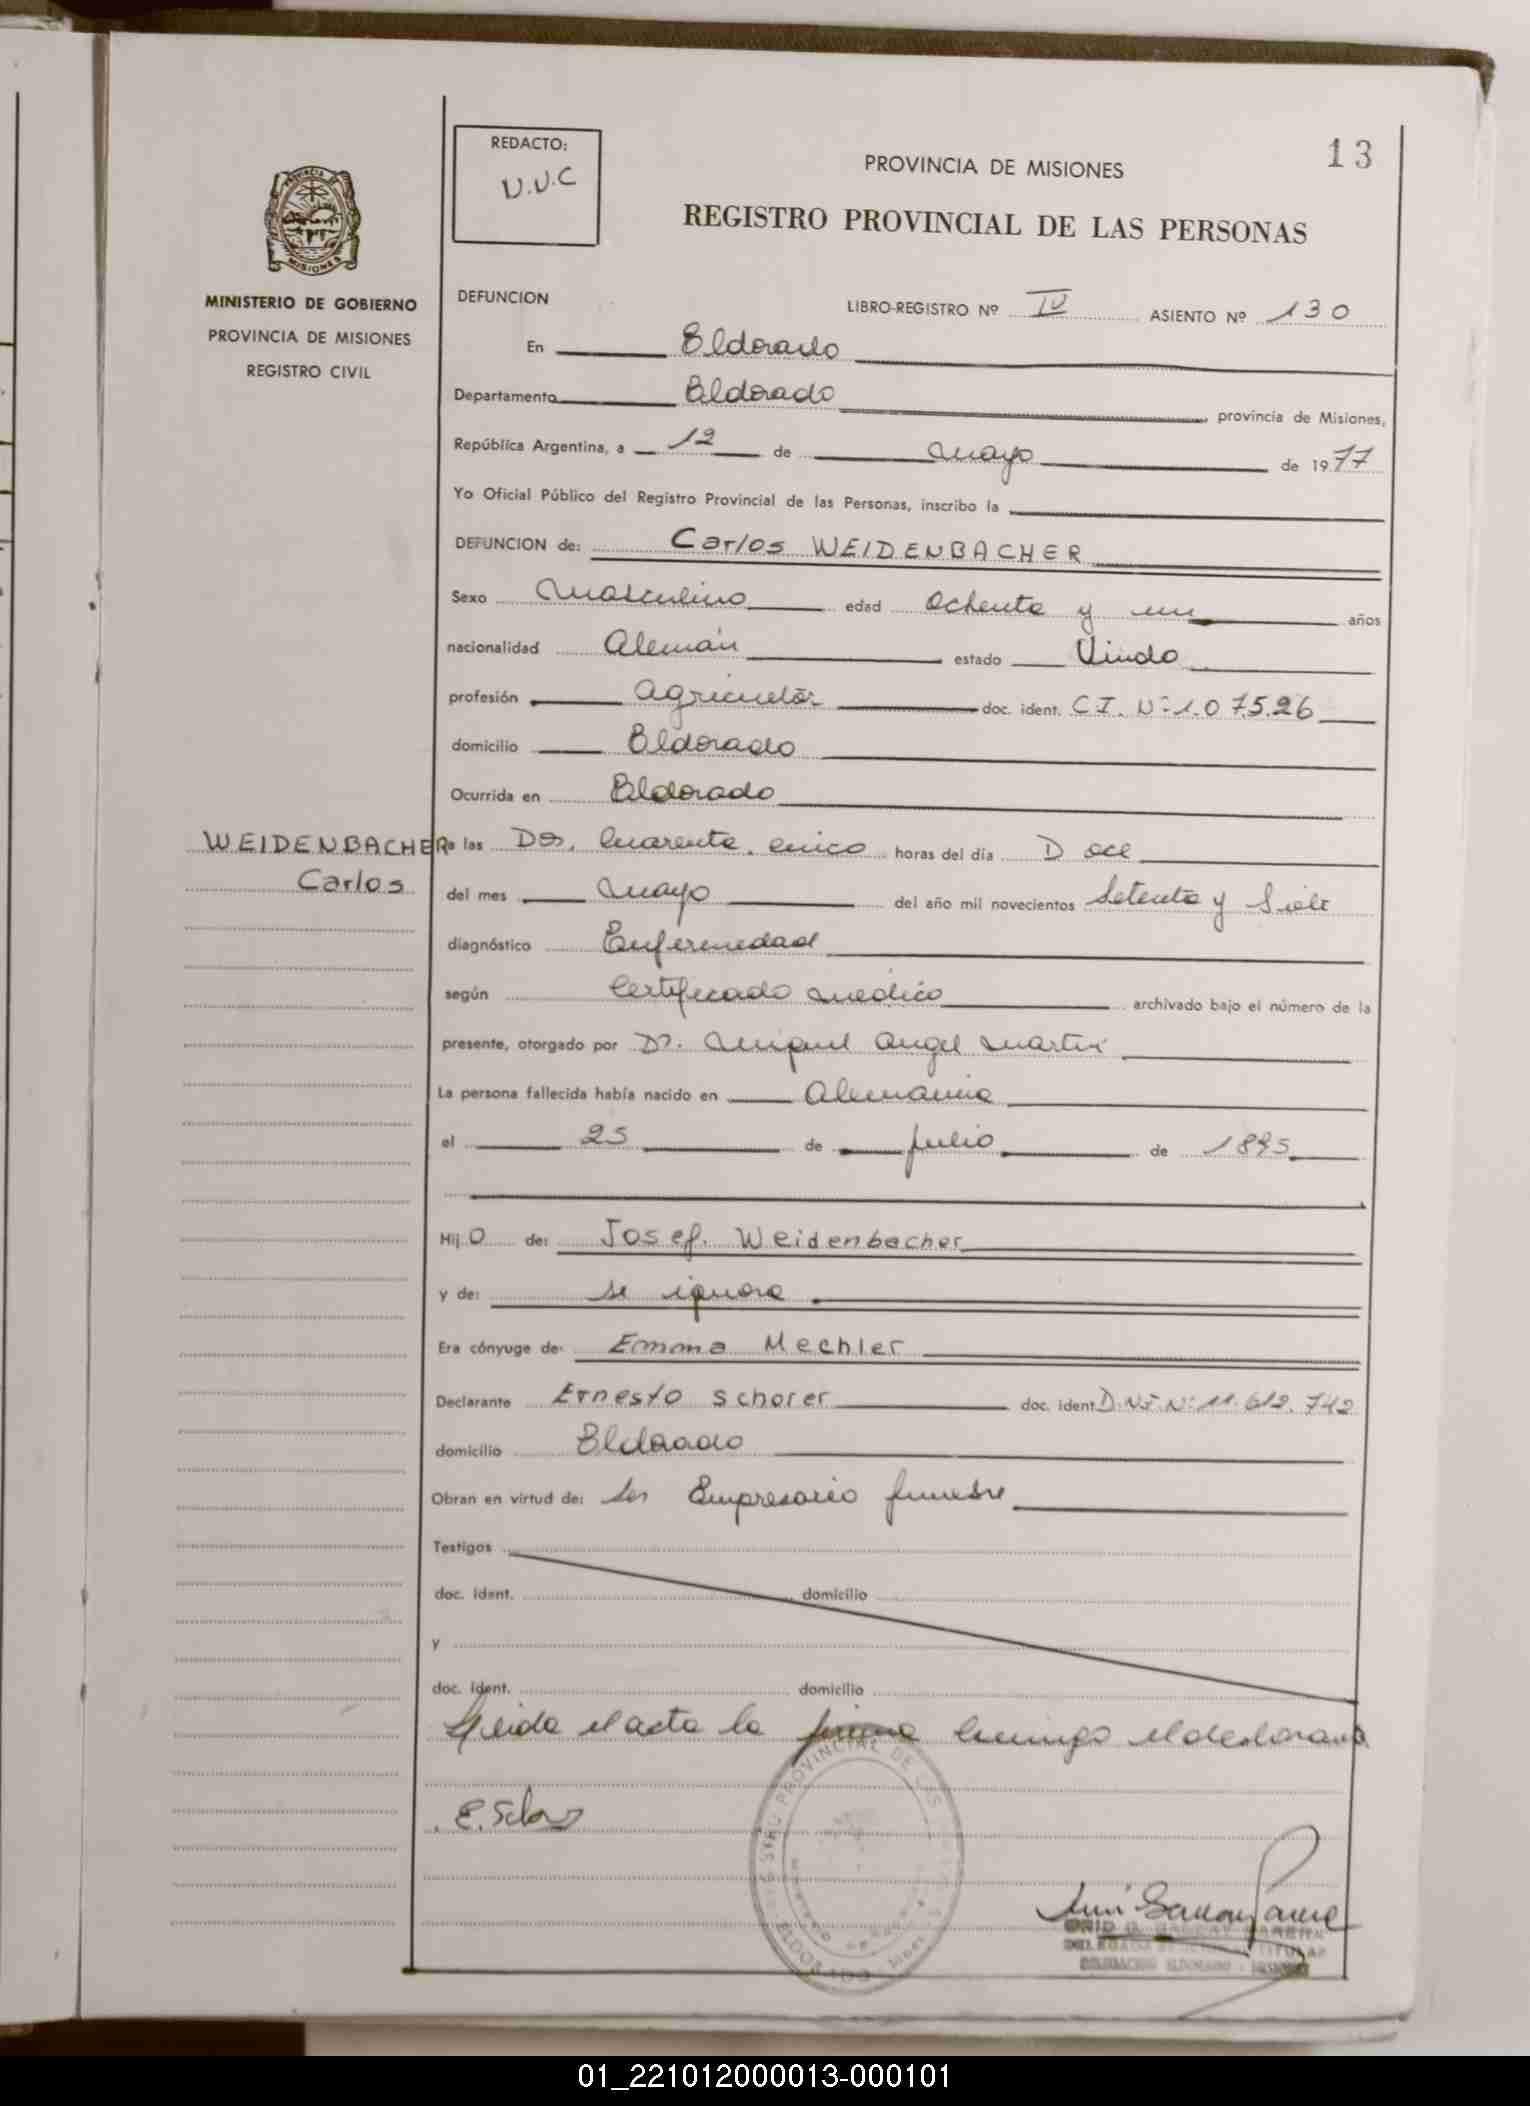 13
REDACTO:
V.V.C
PROVINCIA DE MISIONES
REGISTRO PROVINCIAL DE LAS PERSONAS
MINISTERIO DE GOBIERNO
PROVINCIA DE MISIONES
REGISTRO CIVIL
DEFUNCION
LIBRO-REGISTRO Nº IV ASIENTO Nº 130
En Eldorado
Departamento Eldorado, provincia de Misiones,
República Argentina, a 12 de Mayo de 1977
Yo Oficial Público del Registro Provincial de las Personas, inscribo la
DEFUNCION de: Carlos WEIDENBACHER
Sexo Masculino edad Ochenta y un años
nacionalidad Alemán estado Viudo
profesión Agricultor doc. ident. C.I. Nº 1.07526
domicilio Eldorado
Ocurrida en Eldorado
WEIDENBACHER
Carlos
a las Dos, Cuarenta, cinco horas del día Doce
del mes Mayo del año mil novecientos Setenta y Siete
diagnóstico Enfermedad
según Certificado Médico archivado bajo el número de la
presente, otorgado por Dr. Miguel Angel Martin
La persona fallecida había nacido en Alemania
el 25 de Julio de 1895
Hijo de: Josef. Weidenbacher
y de: se ignora
Era cónyuge de: Emma Mechler
Declarante Ernesto Schorer doc. ident. D.N.I. Nº 11.612.742
domicilio Eldorado
Obran en virtud de: Ser Empresario fúnebre
Testigos
doc. ident. domicilio
y
doc. ident. domicilio
Leida el acta la firma conmigo el declarante
ELDORADO
01_221012000013-000101